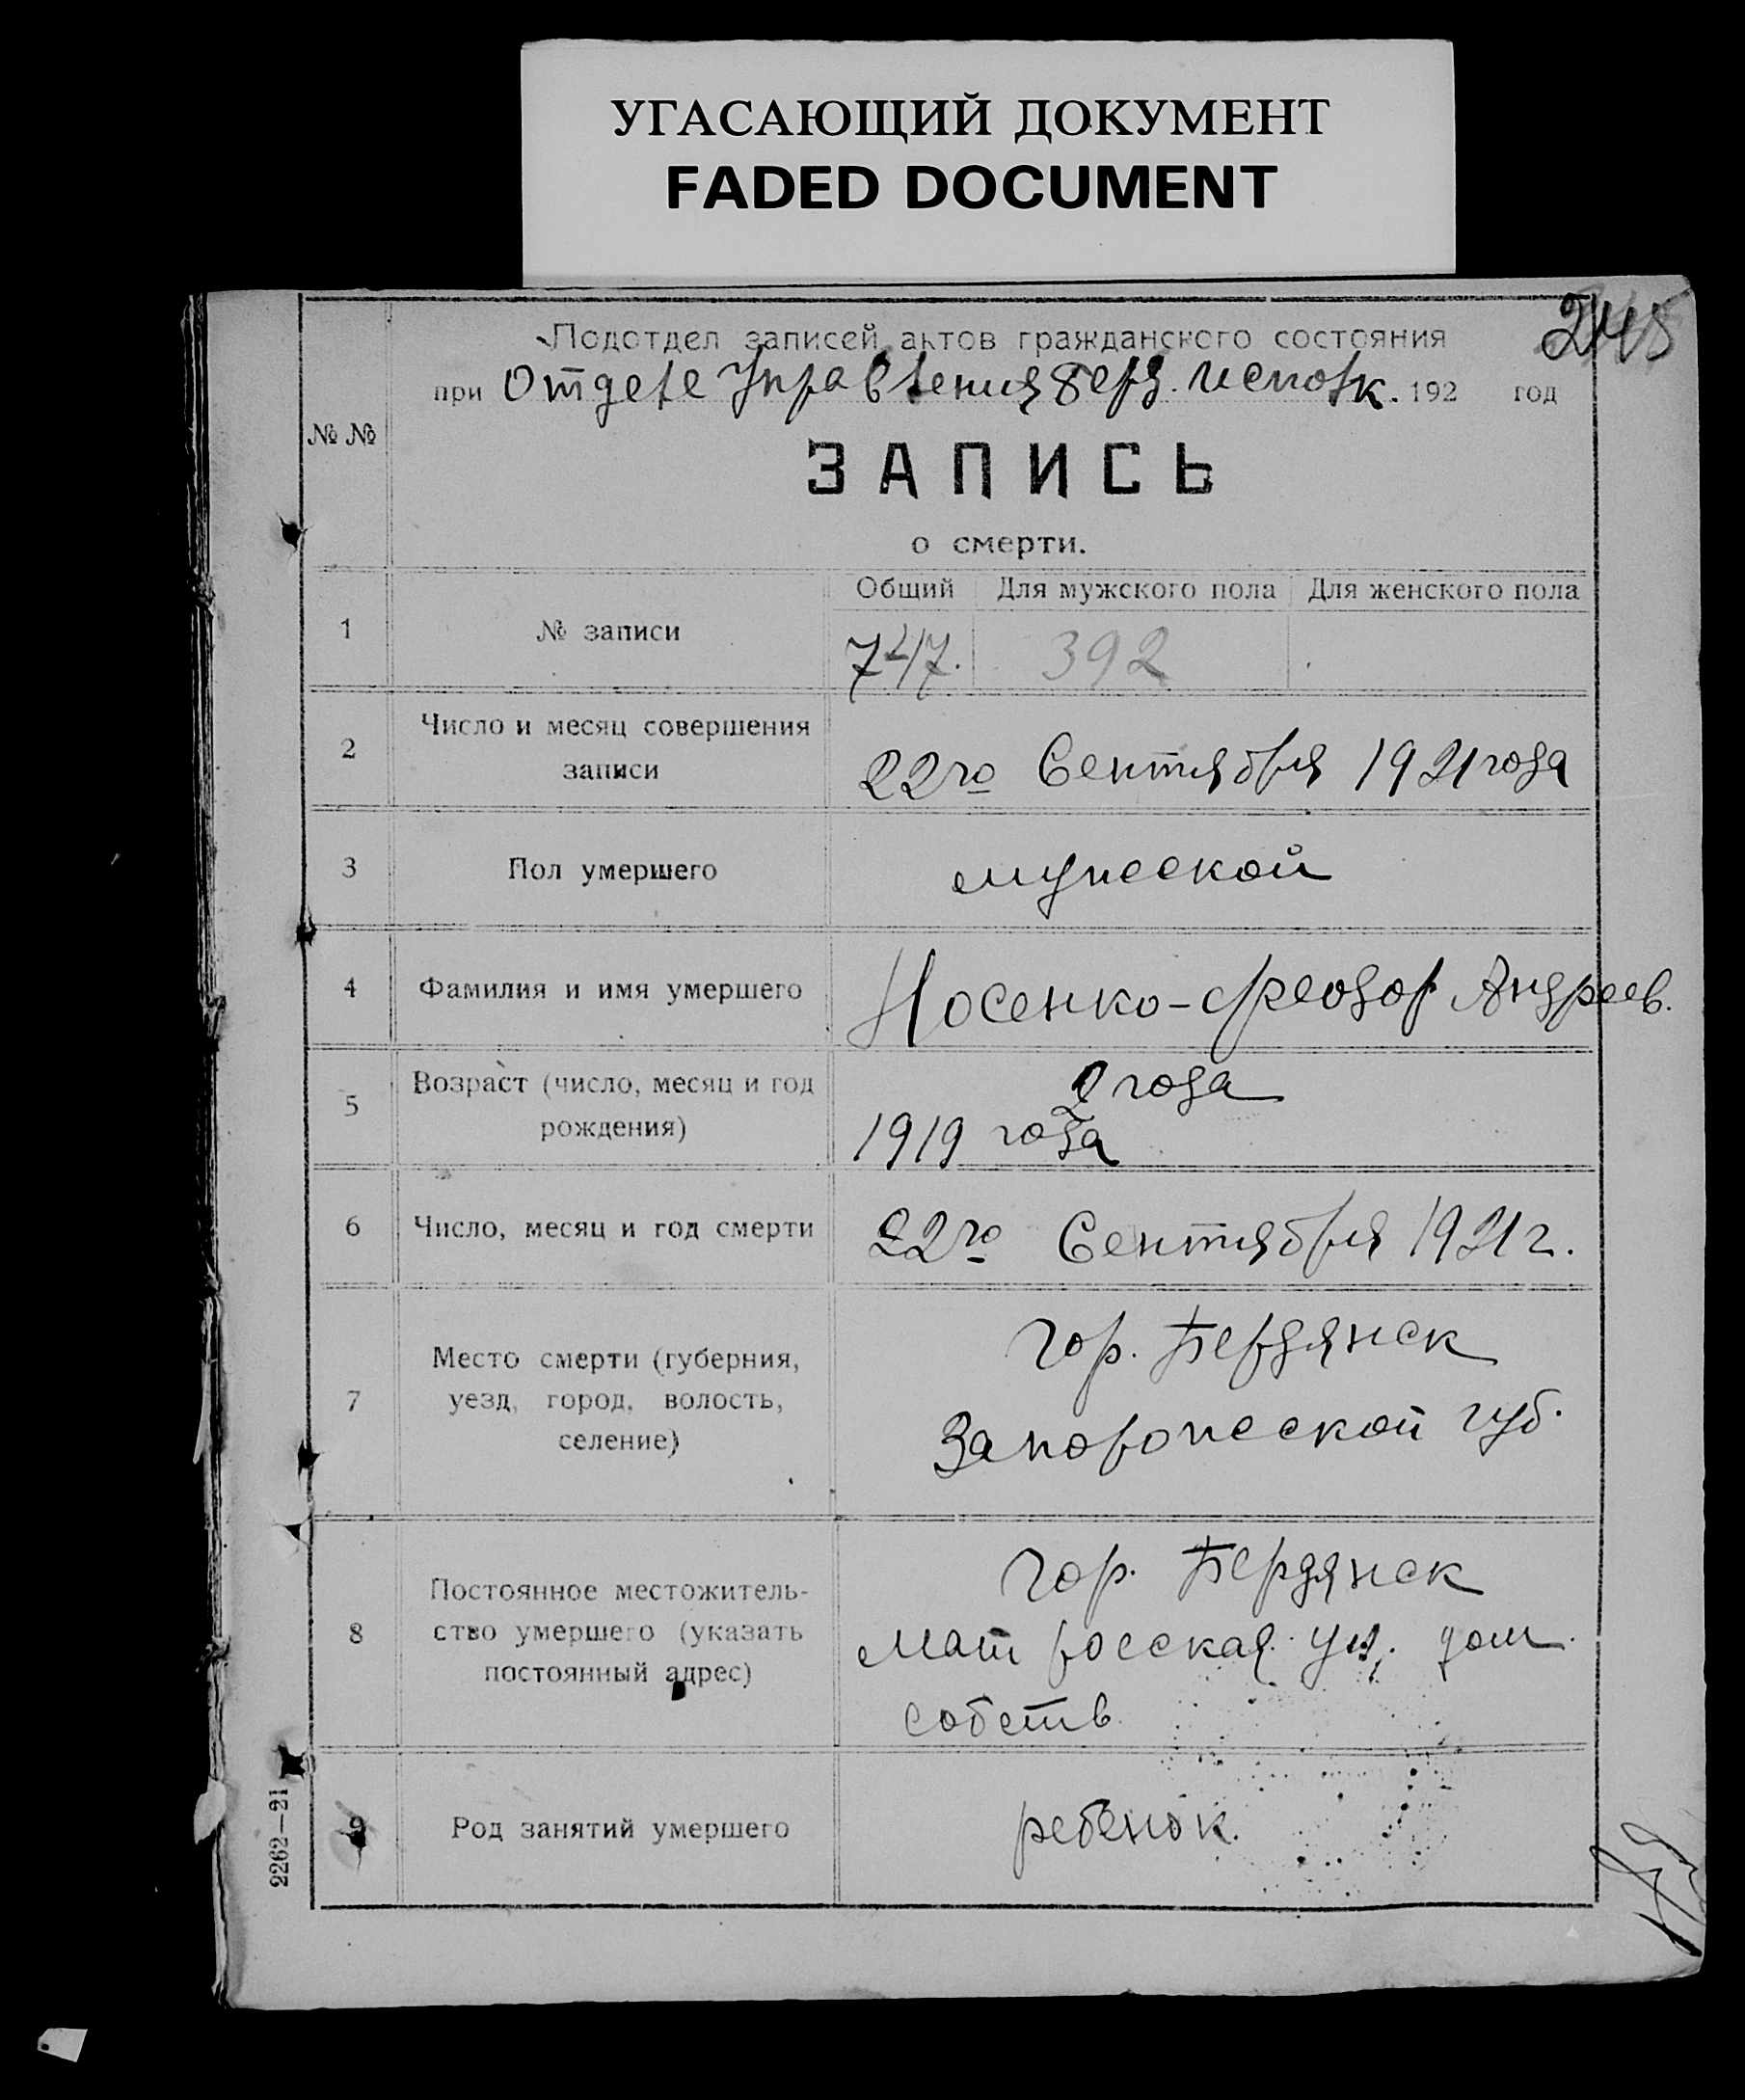 УГАСАЮЩИЙ ДОКУМЕНТ
FADED DOCUMENT
Подотдел записей актов гражданского состояния
при Отделе Управления Берд. исполк. 192 год
№ №
ЗАПИСЬ
о смерти.
Общий Для мужского пола Для женского пола
1 № записи 747. 392
2 Число и месяц совершения
записи
22го Сентября 1921 года
3 Пол умершего мужской
4 Фамилия и имя умершего Носенко-Феодор Андреев.
5 Возраст (число, месяц и год
рождения)
2 года
1919 года
6 Число, месяц и год смерти 22го Сентября 1921 г.
7 Место смерти (губерния,
уезд, город, волость,
селение)
гор. Бердянск
Запорожской губ.
8 Постоянное местожитель-
ство умершего (указать
постоянный адрес)
гор. Бердянск
Матросская ул. дом.
собств
9 Род занятий умершего ребенок.
2262—21